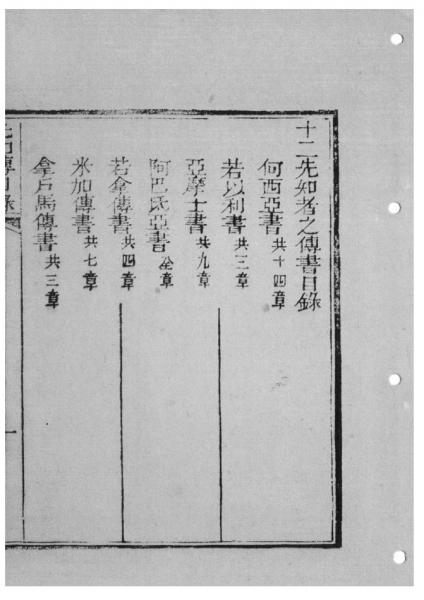 十二先知者之傳書目錄
何西亞書共十四章
若以利書共三章
亞摩士書共九章
阿巴氐亞書全章
若拿傳書共四章
米加傳書共七章
拿戶馬傳書共三章